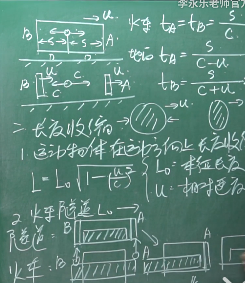 李永乐老师官方
→u
火车 t_A = t_B = S/C
B S S A
地面 t_A = S/(C-u)
t_B = S/(C+u)
B u C C u A
二、长度收缩
1. 运动物体在运动方向上长度收缩
L = L₀√(1-u²/c²) { L₀:本征长度
u:相对速度
2. 火车隧道 L₀
隧道: B A
火车: B A